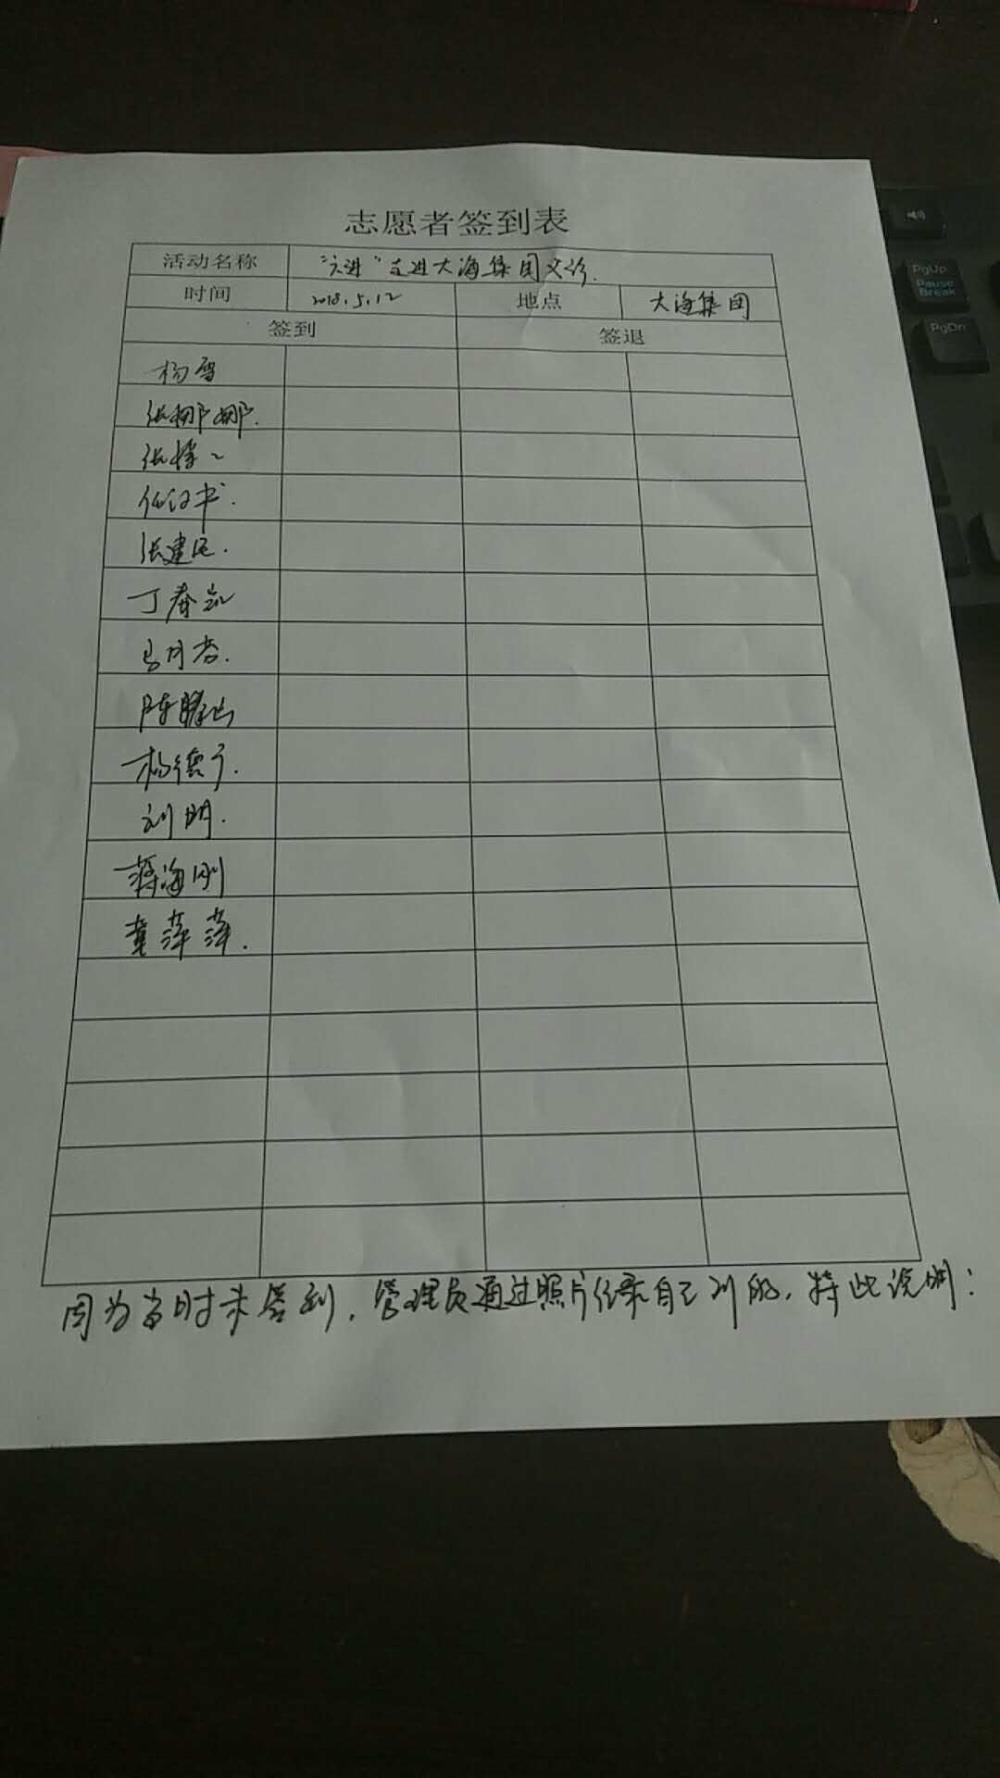 志愿者签到表
活动名称 "六进"走进大海集团义诊.
时间 2018.5.12 地点 大海集团
签到 签退
杨雪
张娜娜.
张
任汉书.
张建民.
丁春
马月杏.
陈腾
杨德
刘明.
蒋海刚
黄萍萍.
因为当时未签到，管理员通过照片记录自己 的，特此说明：
PgUp
Pause
Break
PgDn